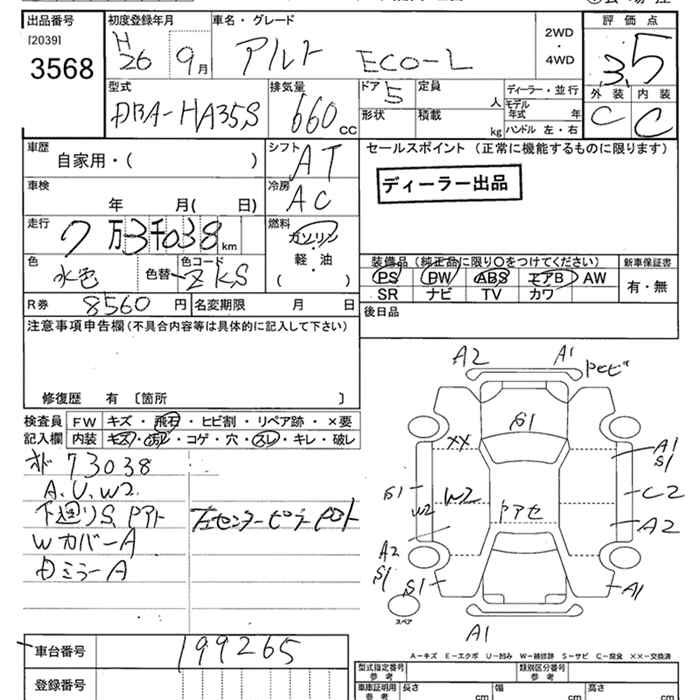 出品番号
[2039]
3568
初度登録年月
H
26 9月
車名・グレード
アルト ECO-L
2WD
・
4WD
評価点
3.5
外装 内装
C C
型式
DBA-HA35S
排気量
660 CC
ドア 5
形状
定員 人
積載 kg
ディーラー・並行
モデル
年式 年
ハンドル 左・右
車歴
自家用・( )
シフト AT
車検
年 月( 日)
冷房 AC
走行
7万3千038km
燃料
ガソリン
軽・油
( )
色
水色
色替
色コード
ZKS
R券 8560円
名変期限 月 日
セールスポイント(正常に機能するものに限ります)
ディーラー出品
装備品(純正品に限り○をつけてください)
PS PW ABS エアB AW
SR ナビ TV カワ
新車保証書
有・無
後日品
注意事項申告欄(不具合内容等は具体的に記入して下さい)
修復歴 有 〔箇所 〕
検査員
記入欄
FW キズ・飛石・ヒビ割・リペア跡・×要
内装 キズ・汚レ・コゲ・穴・スレ・キレ・破レ
73038
A.U.W2
下廻りS
左センターピラー
WカバーA
ミラーA
A2 A1
G1
XX
A1
S1
G1
W2 W2
C2
A2
A2
S1
S1
A1
スペア
A1
A-キズ E-エクボ U-凹み W-補修跡 S-サビ C-腐食 XX-交換済
車台番号 199265
登録番号
型式指定番号
参考
類別区分番号
参考
車庫証明用
参考
長さ cm
幅 cm
高さ cm